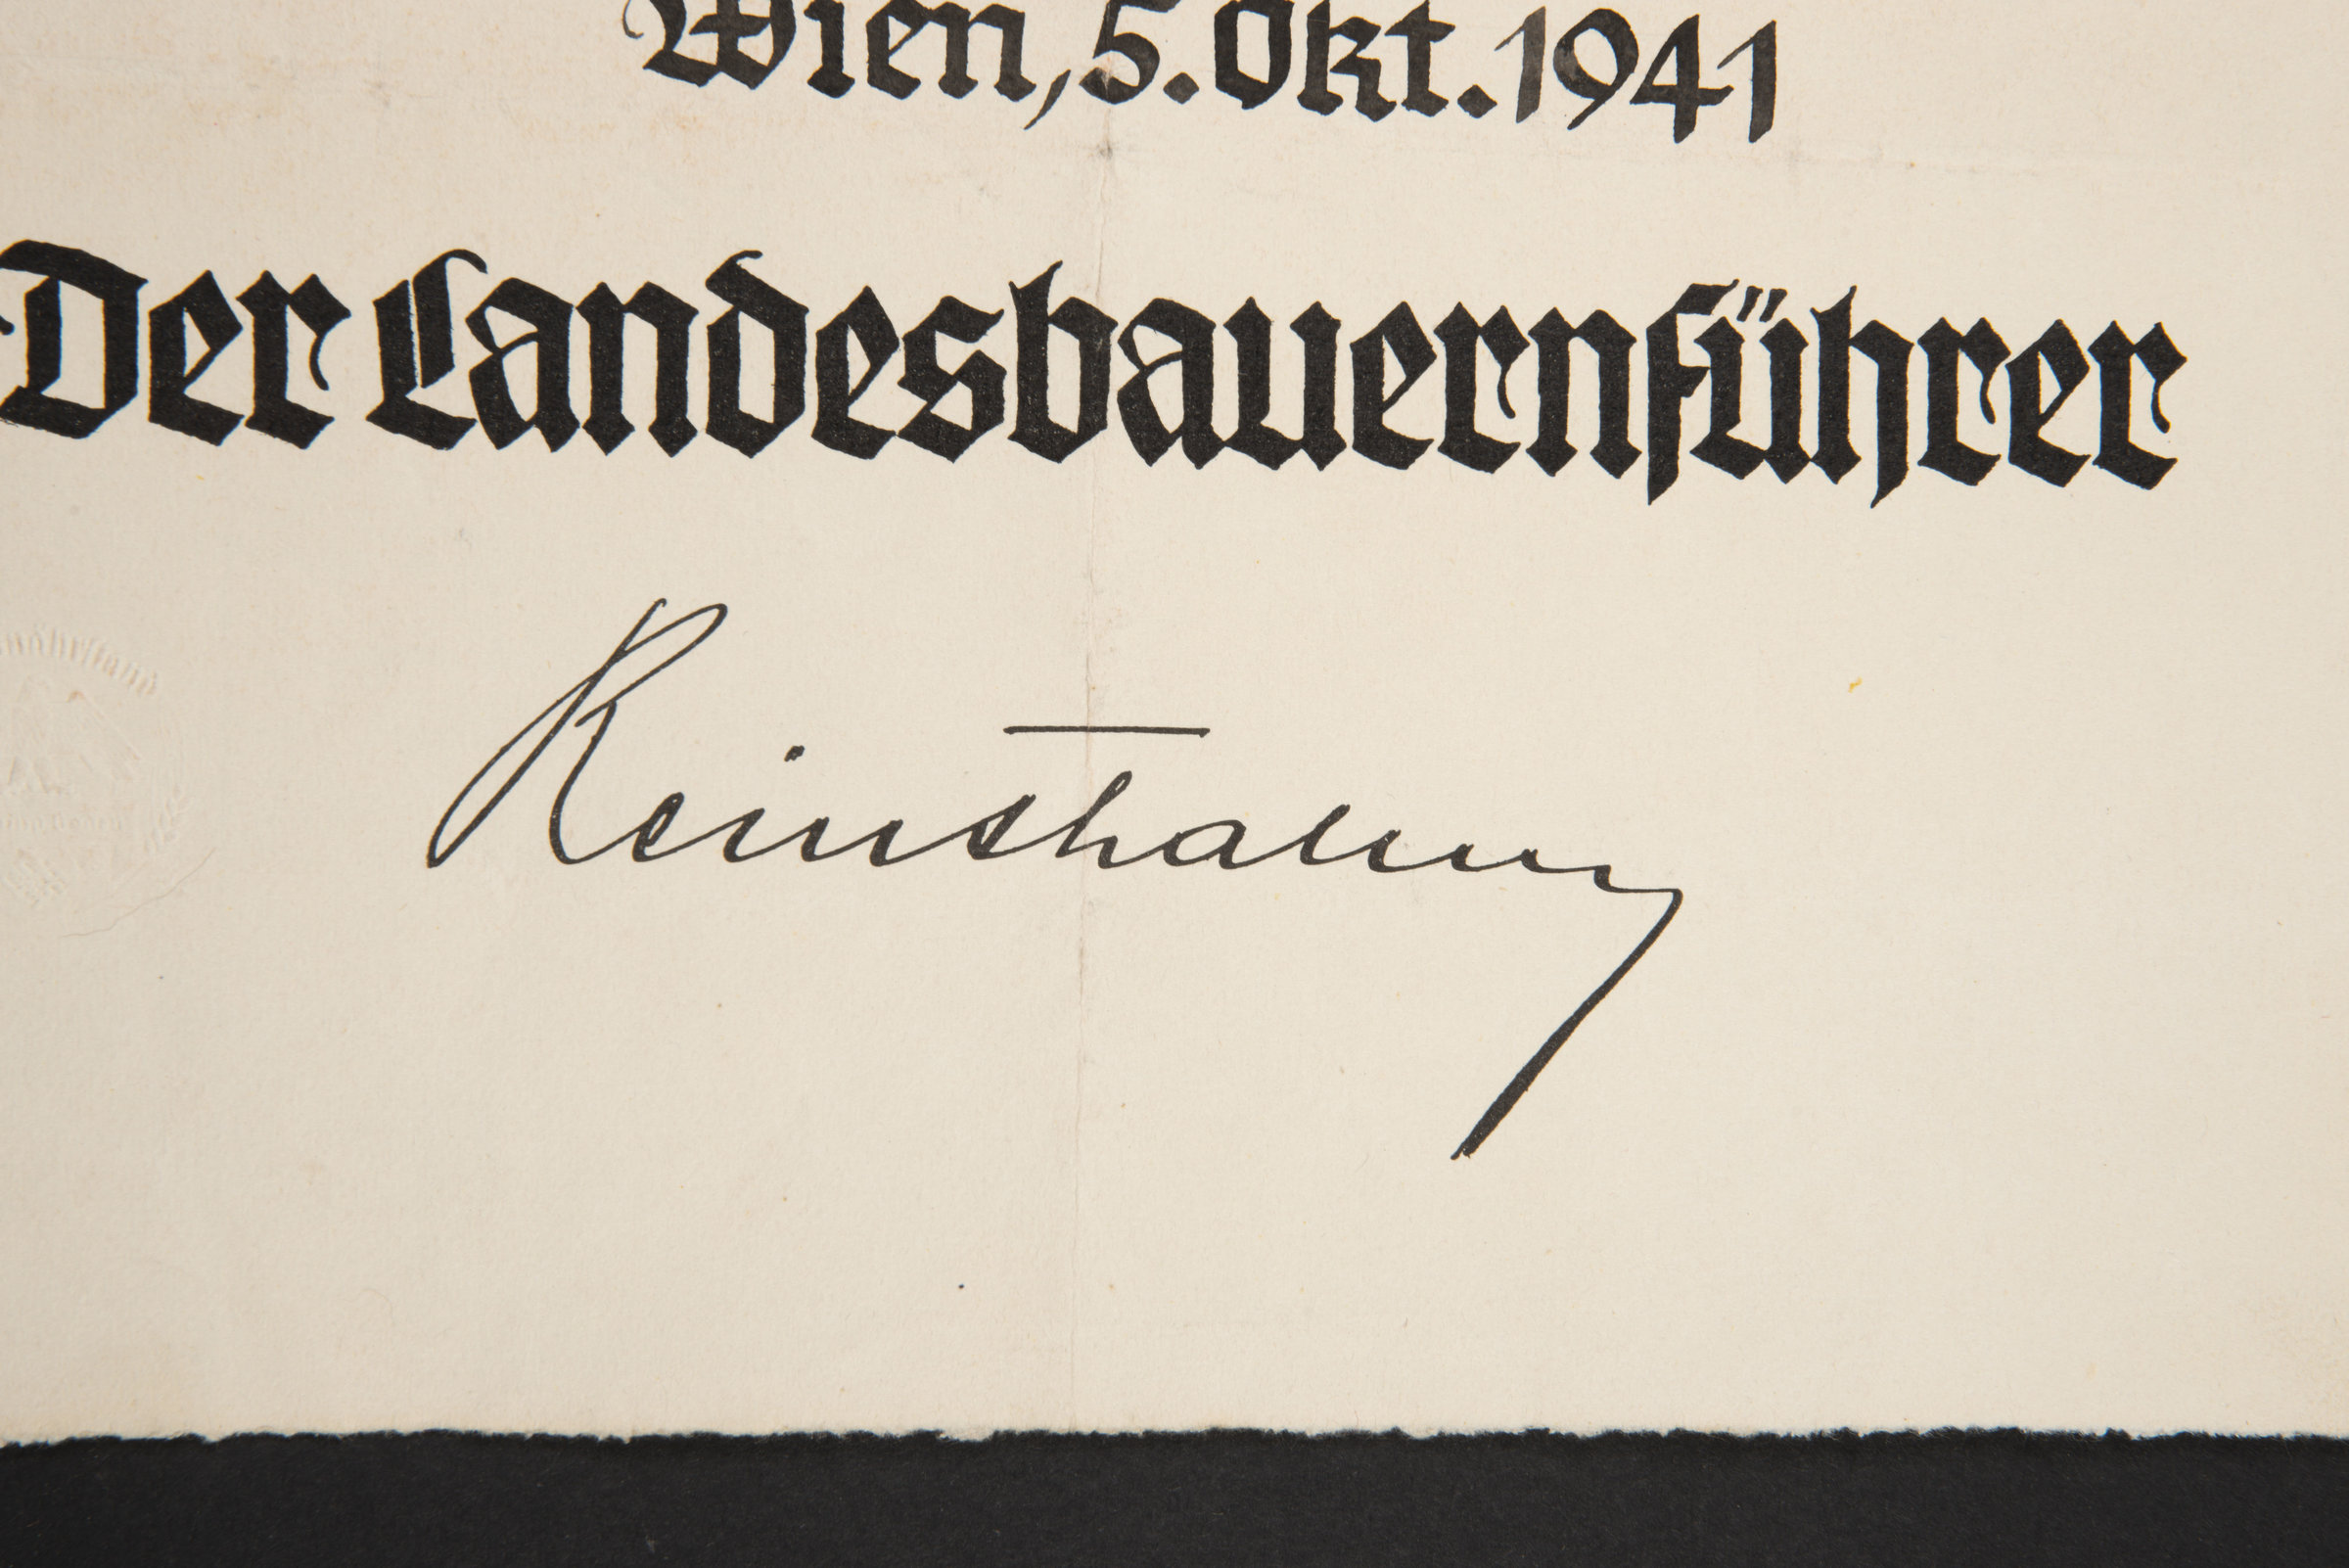 Wien, 5. Okt. 1941
Der Landesbauernführer
Reinthaller